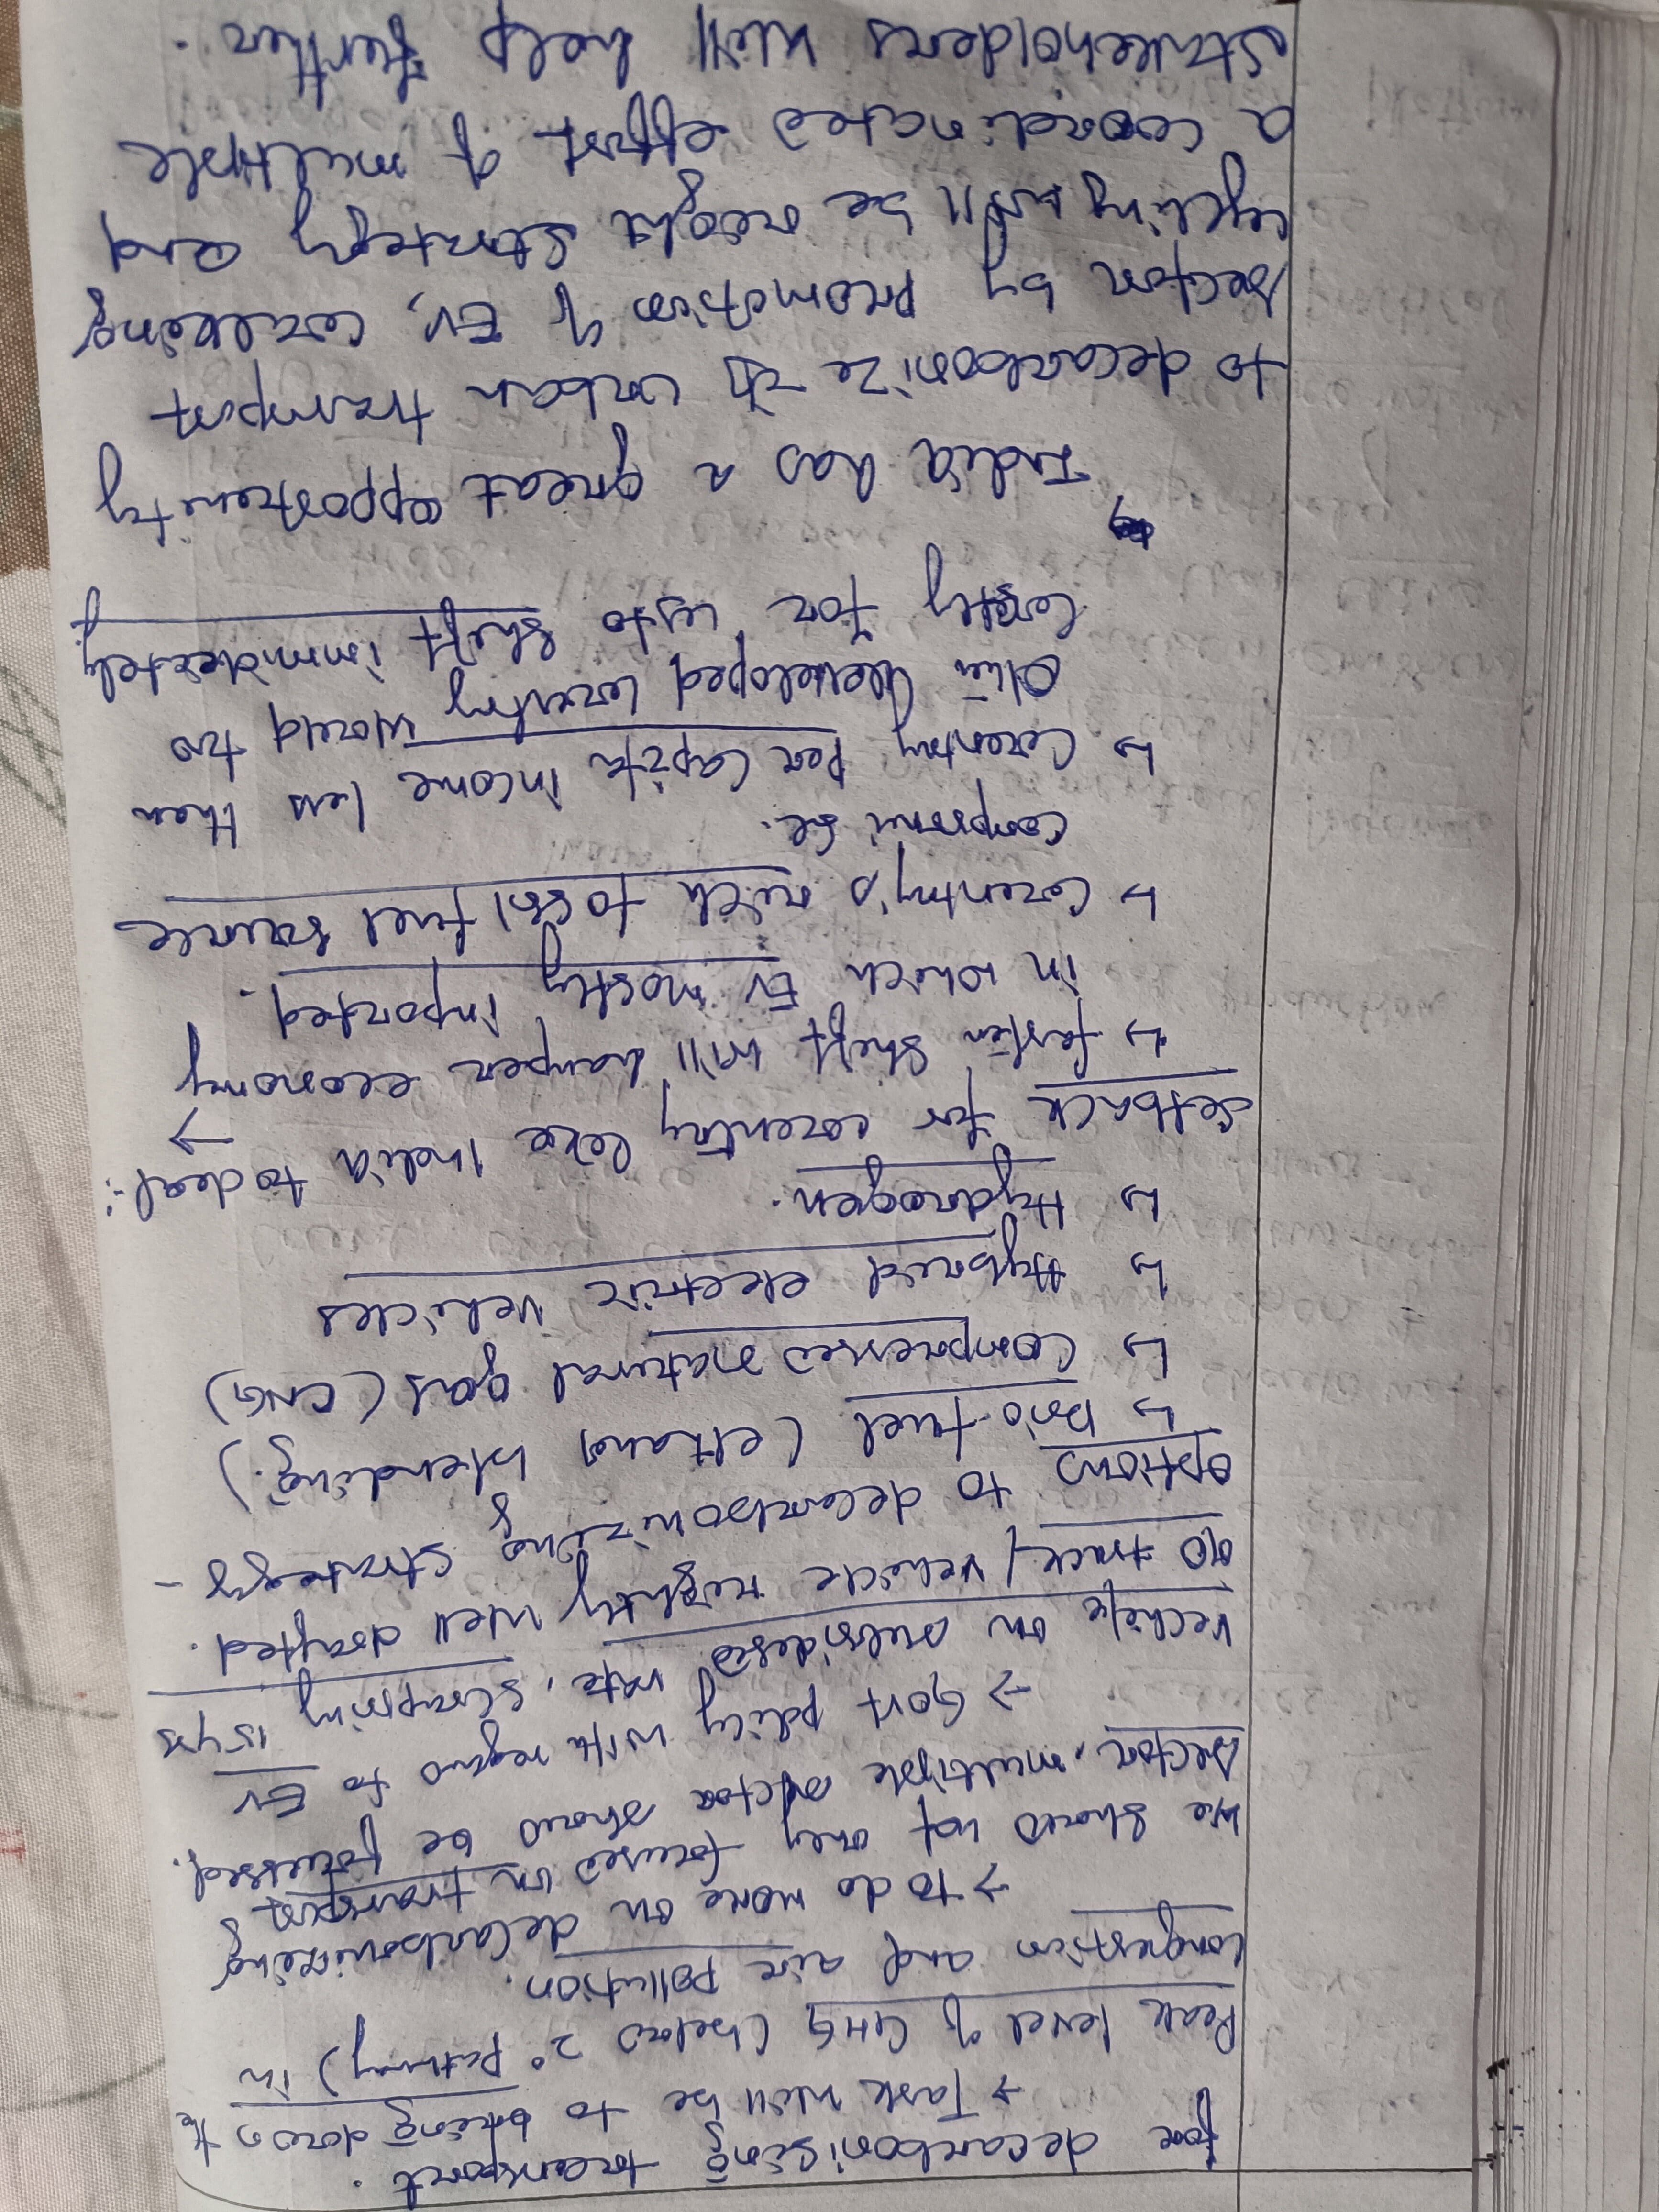 for decarbonising transport.
→ Task will be to bring down the
Peak level of GHG (below 2° Pathway) in
Congestion and air pollution.
→ to do more on decarbonizing
we should not only focused on transport
sector, multiple sector should be focussed.
→ Govt policy with regard to EV
vechile on subsidesed rate, scrapping 15 yrs
old truck/vehicle rightly well drafted.
options to decarbonizing strategy -
↳ Bio-fuel (ethanol blending.)
↳ Compressed natural gas (CNG)
↳ Hybrid electric vehicles
↳ Hydrogen.
Setback for country like India to deal :- →
↳ faster shift will hamper economy
in which EV mostly imported.
↳ Country's rich fossil fuel source
compromise.
↳ Country per capita income less then
other developed country would too
costly for us to shift immidiately
India has a great opportunity
to decarbonize its urban transport
sector by promotion of EV, walking
cycling will be right strategy and
a coordinated effort of multiple
stakeholders will help further.